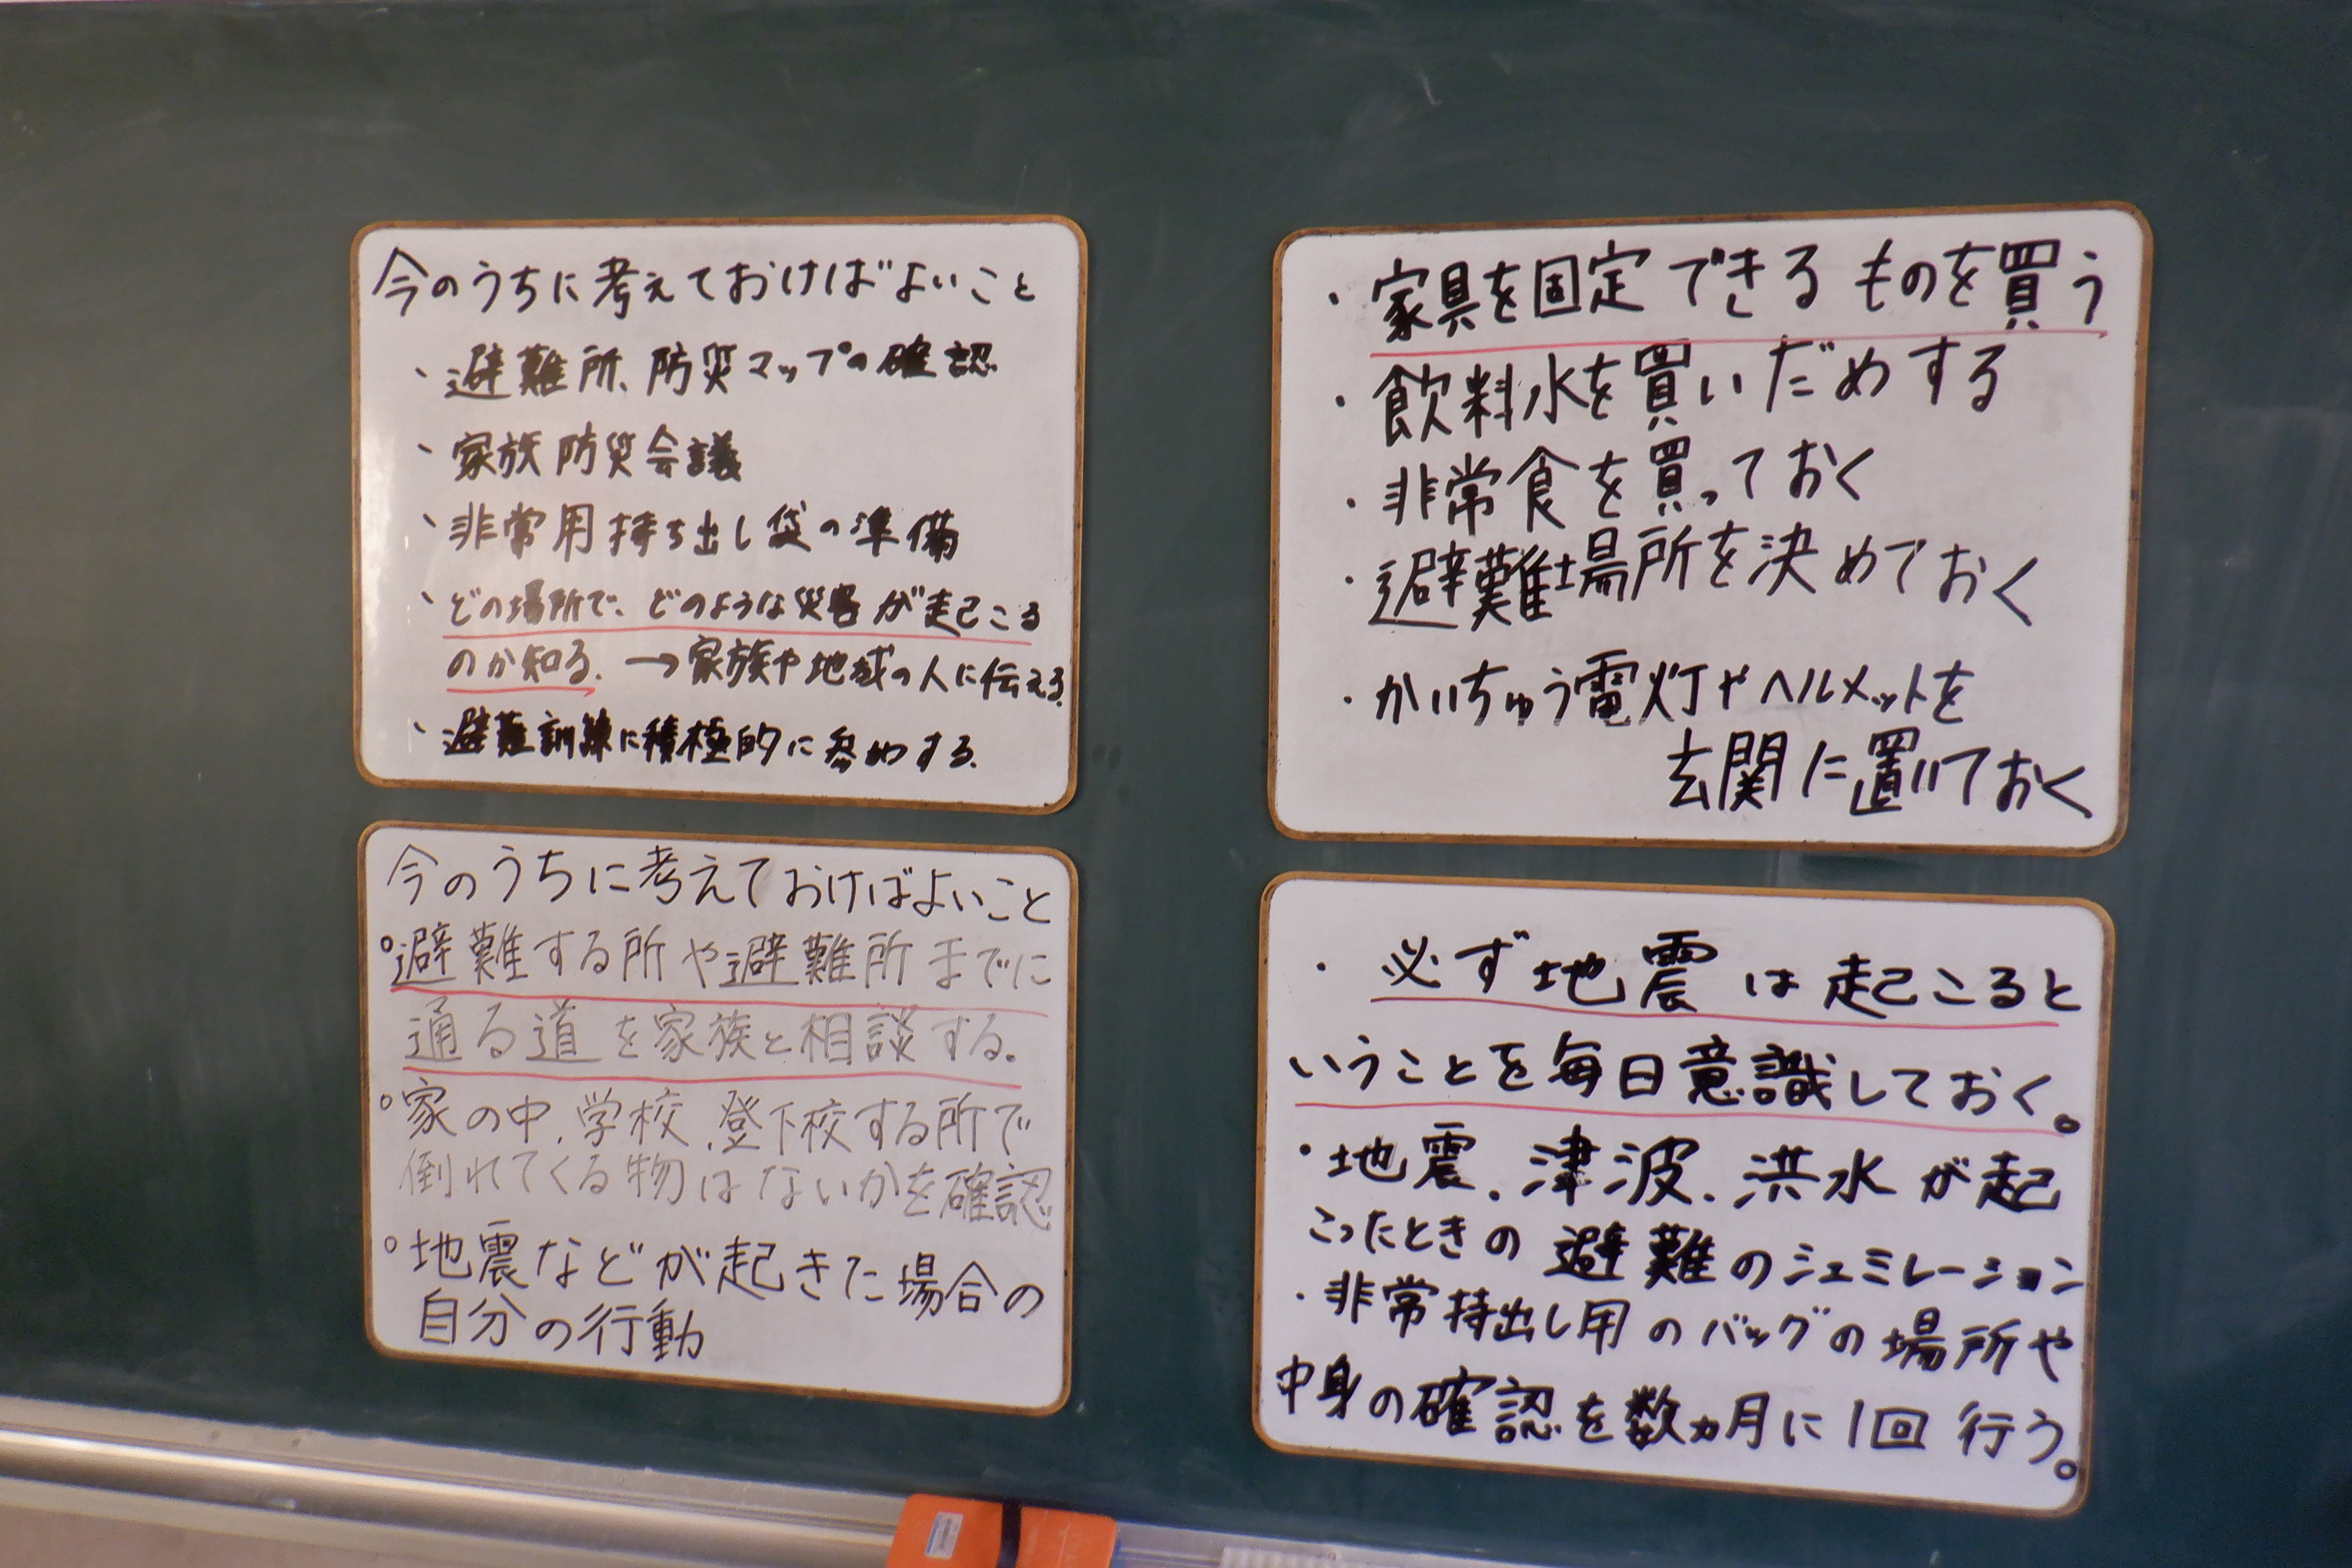 今のうちに考えておけばよいこと
・避難所、防災マップの確認
・家族防災会議
・非常用持ち出し袋の準備
・どの場所で、どのような災害が起こる
のか知る。→家族や地域の人に伝える。
・避難訓練に積極的に参加する。
・家具を固定できるものを買う
・飲料水を買いだめする
・非常食を買っておく
・避難場所を決めておく
・かいちゅう電灯やヘルメットを
玄関に置いておく
今のうちに考えておけばよいこと
○避難する所や避難所までに
通る道を家族と相談する。
○家の中、学校、登下校する所で
倒れてくる物はないかを確認
○地震などが起きた場合の
自分の行動
・必ず地震は起こると
いうことを毎日意識しておく。
・地震、津波、洪水が起
こったときの避難のシュミレーション
・非常持出し用のバッグの場所や
中身の確認を数ヵ月に1回行う。